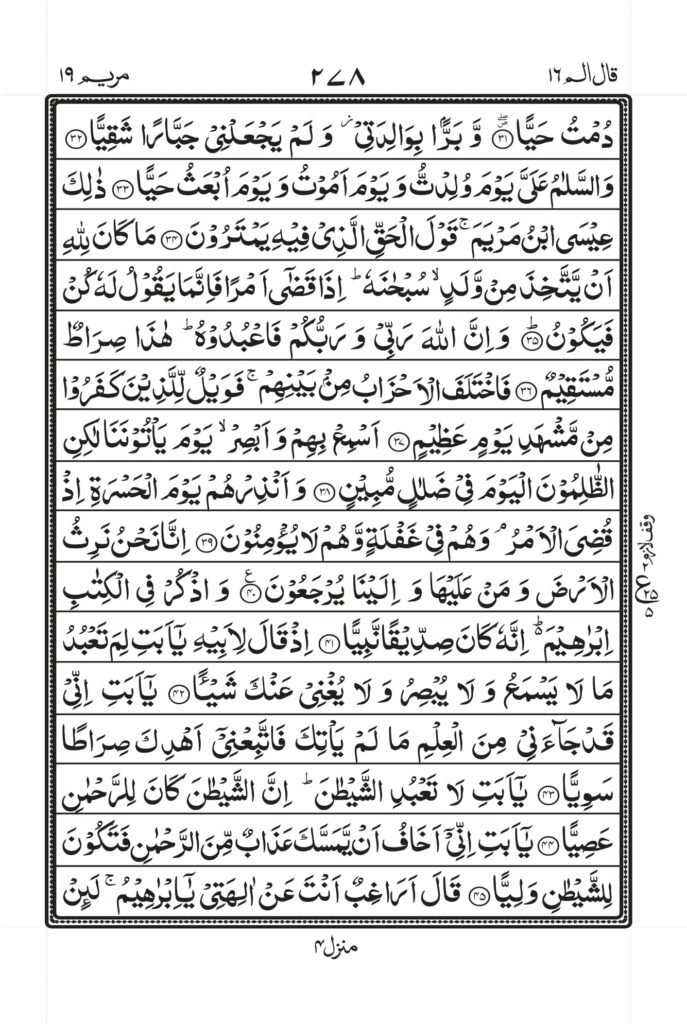 قال الـم ١٦
٢٧٨
مريم ١٩
دُمْتُ حَيًّا ۪ۖ‏﴿۳۱﴾ وَّ بَرًّۢا بِوَالِدَتِیْ ؗ وَ لَمْ یَجْعَلْنِیْ جَبَّارًا شَقِیًّا ﴿۳۲﴾
وَالسَّلٰمُ عَلَیَّ یَوْمَ وُلِدْتُّ وَ یَوْمَ اَمُوْتُ وَ یَوْمَ اُبْعَثُ حَیًّا ﴿۳۳﴾ ذٰلِكَ
عِیْسَی ابْنُ مَرْیَمَ ۚ قَوْلَ الْحَقِّ الَّذِیْ فِیْهِ یَمْتَرُوْنَ ﴿۳۴﴾ مَا كَانَ لِلّٰهِ
اَنْ یَّتَّخِذَ مِنْ وَّلَدٍ ۙ سُبْحٰنَهٗ ؕ اِذَا قَضٰۤی اَمْرًا فَاِنَّمَا یَقُوْلُ لَهٗ كُنْ
فَیَكُوْنُ ﴿ؕ۳۵﴾ وَ اِنَّ اللّٰهَ رَبِّیْ وَ رَبُّكُمْ فَاعْبُدُوْهُ ؕ هٰذَا صِرَاطٌ
مُّسْتَقِیْمٌ ﴿۳۶﴾ فَاخْتَلَفَ الْاَحْزَابُ مِنْۢ بَیْنِهِمْ ۚ فَوَیْلٌ لِّلَّذِیْنَ كَفَرُوْا
مِنْ مَّشْهَدِ یَوْمٍ عَظِیْمٍ ﴿۳۷﴾ اَسْمِعْ بِهِمْ وَ اَبْصِرْ ۙ یَوْمَ یَاْتُوْنَنَا لٰكِنِ
الظّٰلِمُوْنَ الْیَوْمَ فِیْ ضَلٰلٍ مُّبِیْنٍ ﴿۳۸﴾ وَ اَنْذِرْهُمْ یَوْمَ الْحَسْرَةِ اِذْ
قُضِیَ الْاَمْرُ ۘ وَهُمْ فِیْ غَفْلَةٍ وَّهُمْ لَا یُؤْمِنُوْنَ ﴿۳۹﴾ اِنَّا نَحْنُ نَرِثُ
وقف لازم
الْاَرْضَ وَ مَنْ عَلَیْهَا وَ اِلَیْنَا یُرْجَعُوْنَ ﴿۴۰﴾ۧ وَ اذْكُرْ فِی الْكِتٰبِ
اِبْرٰهِیْمَ ؕ۬ اِنَّهٗ كَانَ صِدِّیْقًا نَّبِیًّا ﴿۴۱﴾ اِذْ قَالَ لِاَبِیْهِ یٰۤاَبَتِ لِمَ تَعْبُدُ
مَا لَا یَسْمَعُ وَ لَا یُبْصِرُ وَ لَا یُغْنِیْ عَنْكَ شَیْـًٔا ﴿۴۲﴾ یٰۤاَبَتِ اِنِّیْ
قَدْ جَآءَنِیْ مِنَ الْعِلْمِ مَا لَمْ یَاْتِكَ فَاتَّبِعْنِیْۤ اَهْدِكَ صِرَاطًا
سَوِیًّا ﴿۴۳﴾ یٰۤاَبَتِ لَا تَعْبُدِ الشَّیْطٰنَ ؕ اِنَّ الشَّیْطٰنَ كَانَ لِلرَّحْمٰنِ
عَصِیًّا ﴿۴۴﴾ یٰۤاَبَتِ اِنِّیْۤ اَخَافُ اَنْ یَّمَسَّكَ عَذَابٌ مِّنَ الرَّحْمٰنِ فَتَكُوْنَ
لِلشَّیْطٰنِ وَلِیًّا ﴿۴۵﴾ قَالَ اَرَاغِبٌ اَنْتَ عَنْ اٰلِهَتِیْ یٰۤاِبْرٰهِیْمُ ۚ لَىِٕنْ
منزل ۴